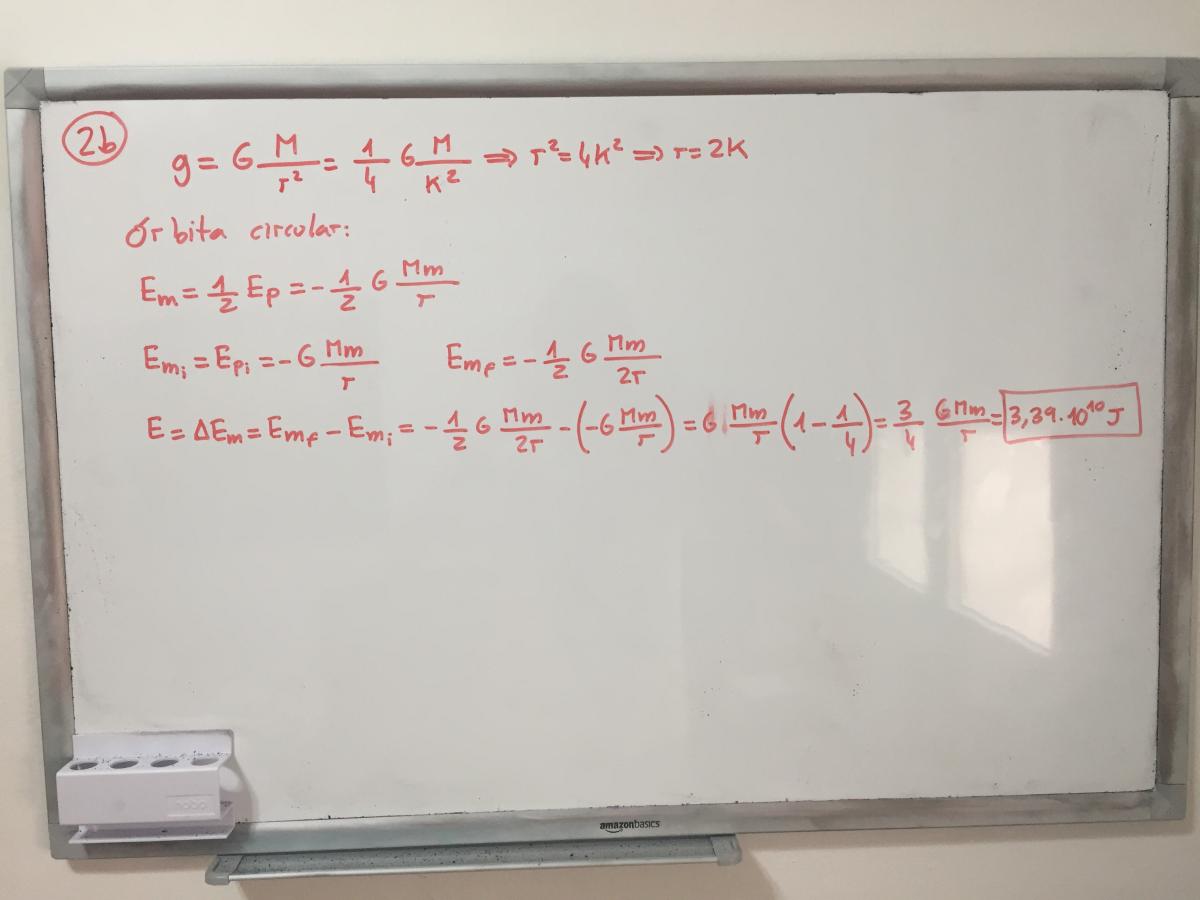 2b
g = G M/r² = 1/4 G M/K² ⇒ r² = 4K² ⇒ r = 2K
Órbita circular:
Em = 1/2 Ep = - 1/2 G Mm/r
Emi = Epi = - G Mm/r    Emf = - 1/2 G Mm/2r
E = ΔEm = Emf - Emi = - 1/2 G Mm/2r - (-G Mm/r) = G Mm/r (1 - 1/4) = 3/4 GMm/r = 3,39·10¹⁰ J
nobo
amazonbasics